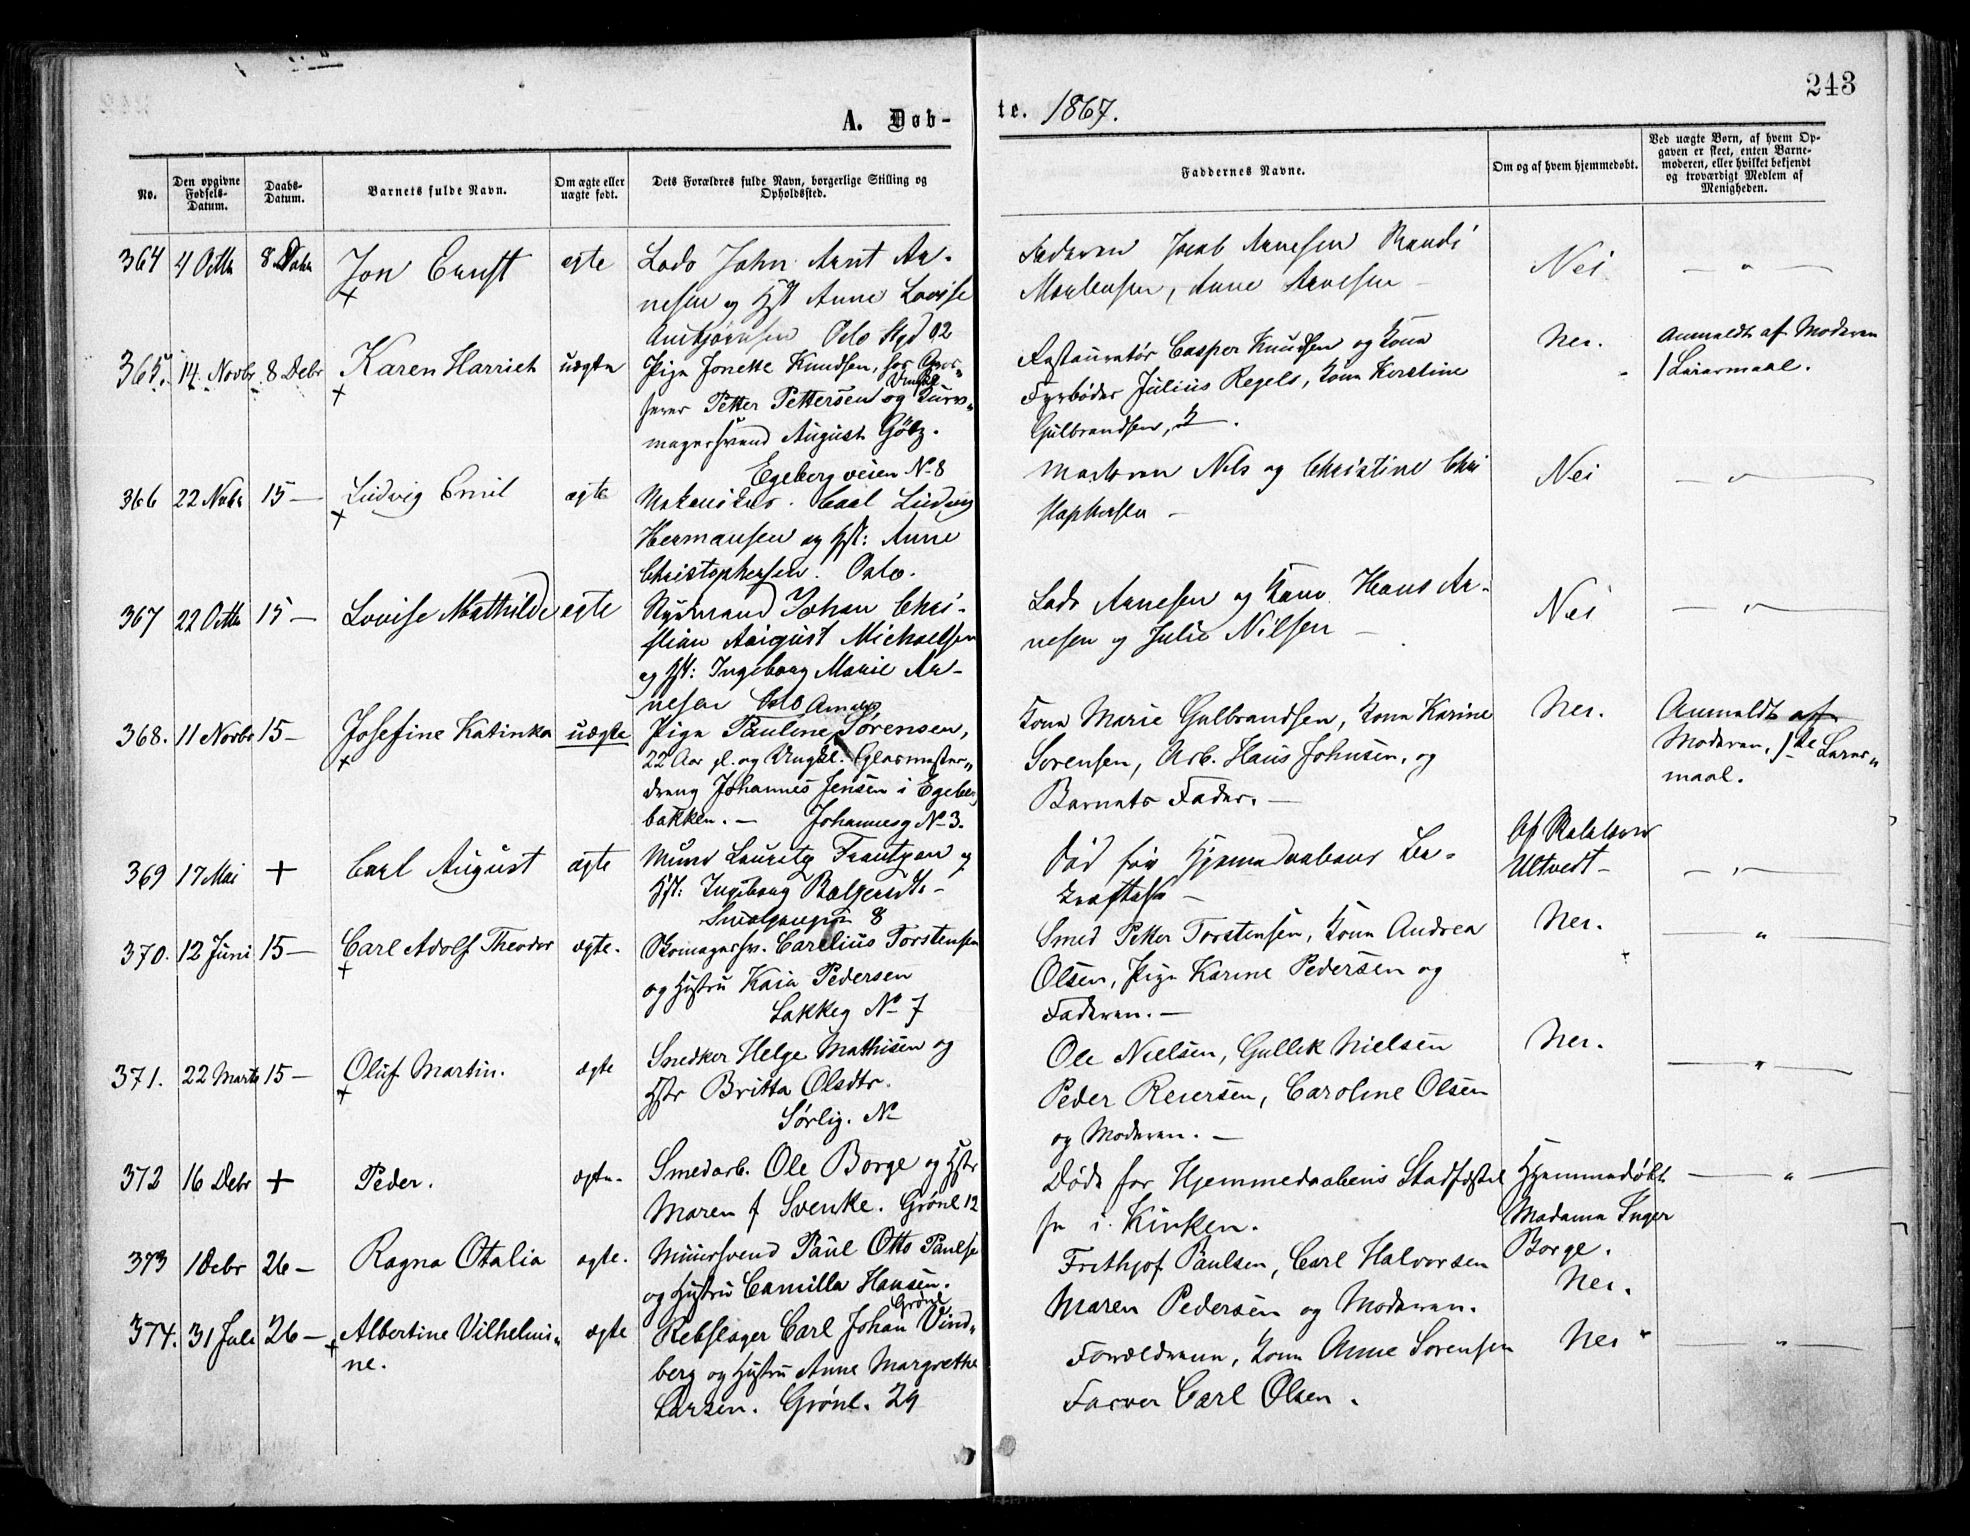 243
A. Døb-
te. 1867.
No.
Den opgivne Fødsels-Datum.
Daabs-Datum.
Barnets fulde Navn.
Om ægte eller uægte født.
Dets Forældres fulde Navn, borgerlige Stilling og Opholdssted.
Faddernes Navne.
Om og af hvem hjemmedøbt.
Ved uægte Børn, af hvem Op-
gaven er skeet, enten Barne-
moderen, eller hvilket bekjendt
og troværdigt Medlem af
Menigheden.
364 4 Octb 8 Jon Ernst ægte Lods John Arnt Ar-
nesen og Hst Anne Lovise
Oslo 92
Faderen Jacob Arnesen Randi
Anne Arnesen
Nei
365. 14 Novbr. 8 Debr Karen Harriet uægte Pige Jonette Knudsen,
Petter Pettersen og
magersvend August Göbz.
Egebergveien N 8
Restauratør Casper Knudsen og Kone
Fyrbøder Julius Regels, Kone Kirstine
Gulbrandsen,
Nei.
Anmeldt af Moderen
1 Leiermaal.
366 22 Novb 15 — Ludvig Emil ægte Mekanikus Carl Ludvig
Hermansen og Hst: Anne
Christophersen. Oslo.
Nils og Christine Chri
stophersen —
Nei
367 22 Octb 15 — Lovise Mathilde ægte Styrmand Johan Chri-
stian August Michaelsen
og Hst: Ingeborg Marie Ar-
nesen Oslo
Lods Arnesen og Kone Hans Ar-
nesen og Julie Nilsen —
Nei
368. 11 Novbr 15 — Josefine Katinka uægte Pige Pauline Amalie Sørensen,
22 Aar gl. og Ungkl. Glarmester-
dreng Johannes Jensen i Egeberg
bakken. — Johannesg N 3.
Kone Marie Gulbrandsen, Kone Karine
Sorensen, Arb. Hans Johnsen, og
Barnets Fader. —
Nei.
Anmeldt af
Moderen, 1ste Leier-
maal.
369 17 Mai + Carl August ægte Murer Lauritz Frantzen og
Hst: Ingeborg
8
Død før Hjemmedaabens Be-
kræftelse —
Af
Ultvedt —
370. 12 Juni 15 — Carl Adolf Theodor ægte. Skomagersv. Carelius Torstensen
og Hustru Kaia Pedersen
Lakkeg N 7
Smed Petter Torstensen, Kone Andrea
Olsen, Pige Karine Pedersen og
Faderen. —
Nei.
371. 22 Marts 15 — Oluf Martin. ægte Snedker Helge Mathisen og
Hstr Britta Olsdtr.
Sørlig. N
Ole Nielsen, Gullik Nielsen
Peder Reiersen, Caroline Olsen
og Moderen. —
Nei.
372 16 Debr + Peder. ægte. Smedarb. Ole Borge og Hstr
Maren f Svenke. Grønl 12
Døde før Hjemmedaabens Stadfæstel
se i Kirken.
Hjemmedøbt
Madame Inger
Borge.
373 1 Debr 26 — Ragna Otalia ægte. Muursvend Paul Otto Paulse
og Hustru Camilla Hansen.
Grønl
Frithjof Paulsen, Carl Halvorsen
Maren Pedersen og Moderen.
Nei.
374. 31 Juli 26 — Albertine Vilhelmi-
ne. ægte Rebslager Carl Johan Vind-
berg og Hustru Anne Margrethe
Larsen. Grönl. 29
Forældrene, Kone Anne Sorensen
Farver Carl Olsen.
Nei